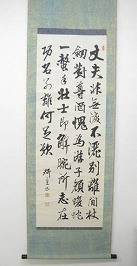 丈夫非無淚不灑別離間杖
劍對尊酒愧為游子顏蝮蛇
一螫手壯士即解腕所志在
功名別離何足歎